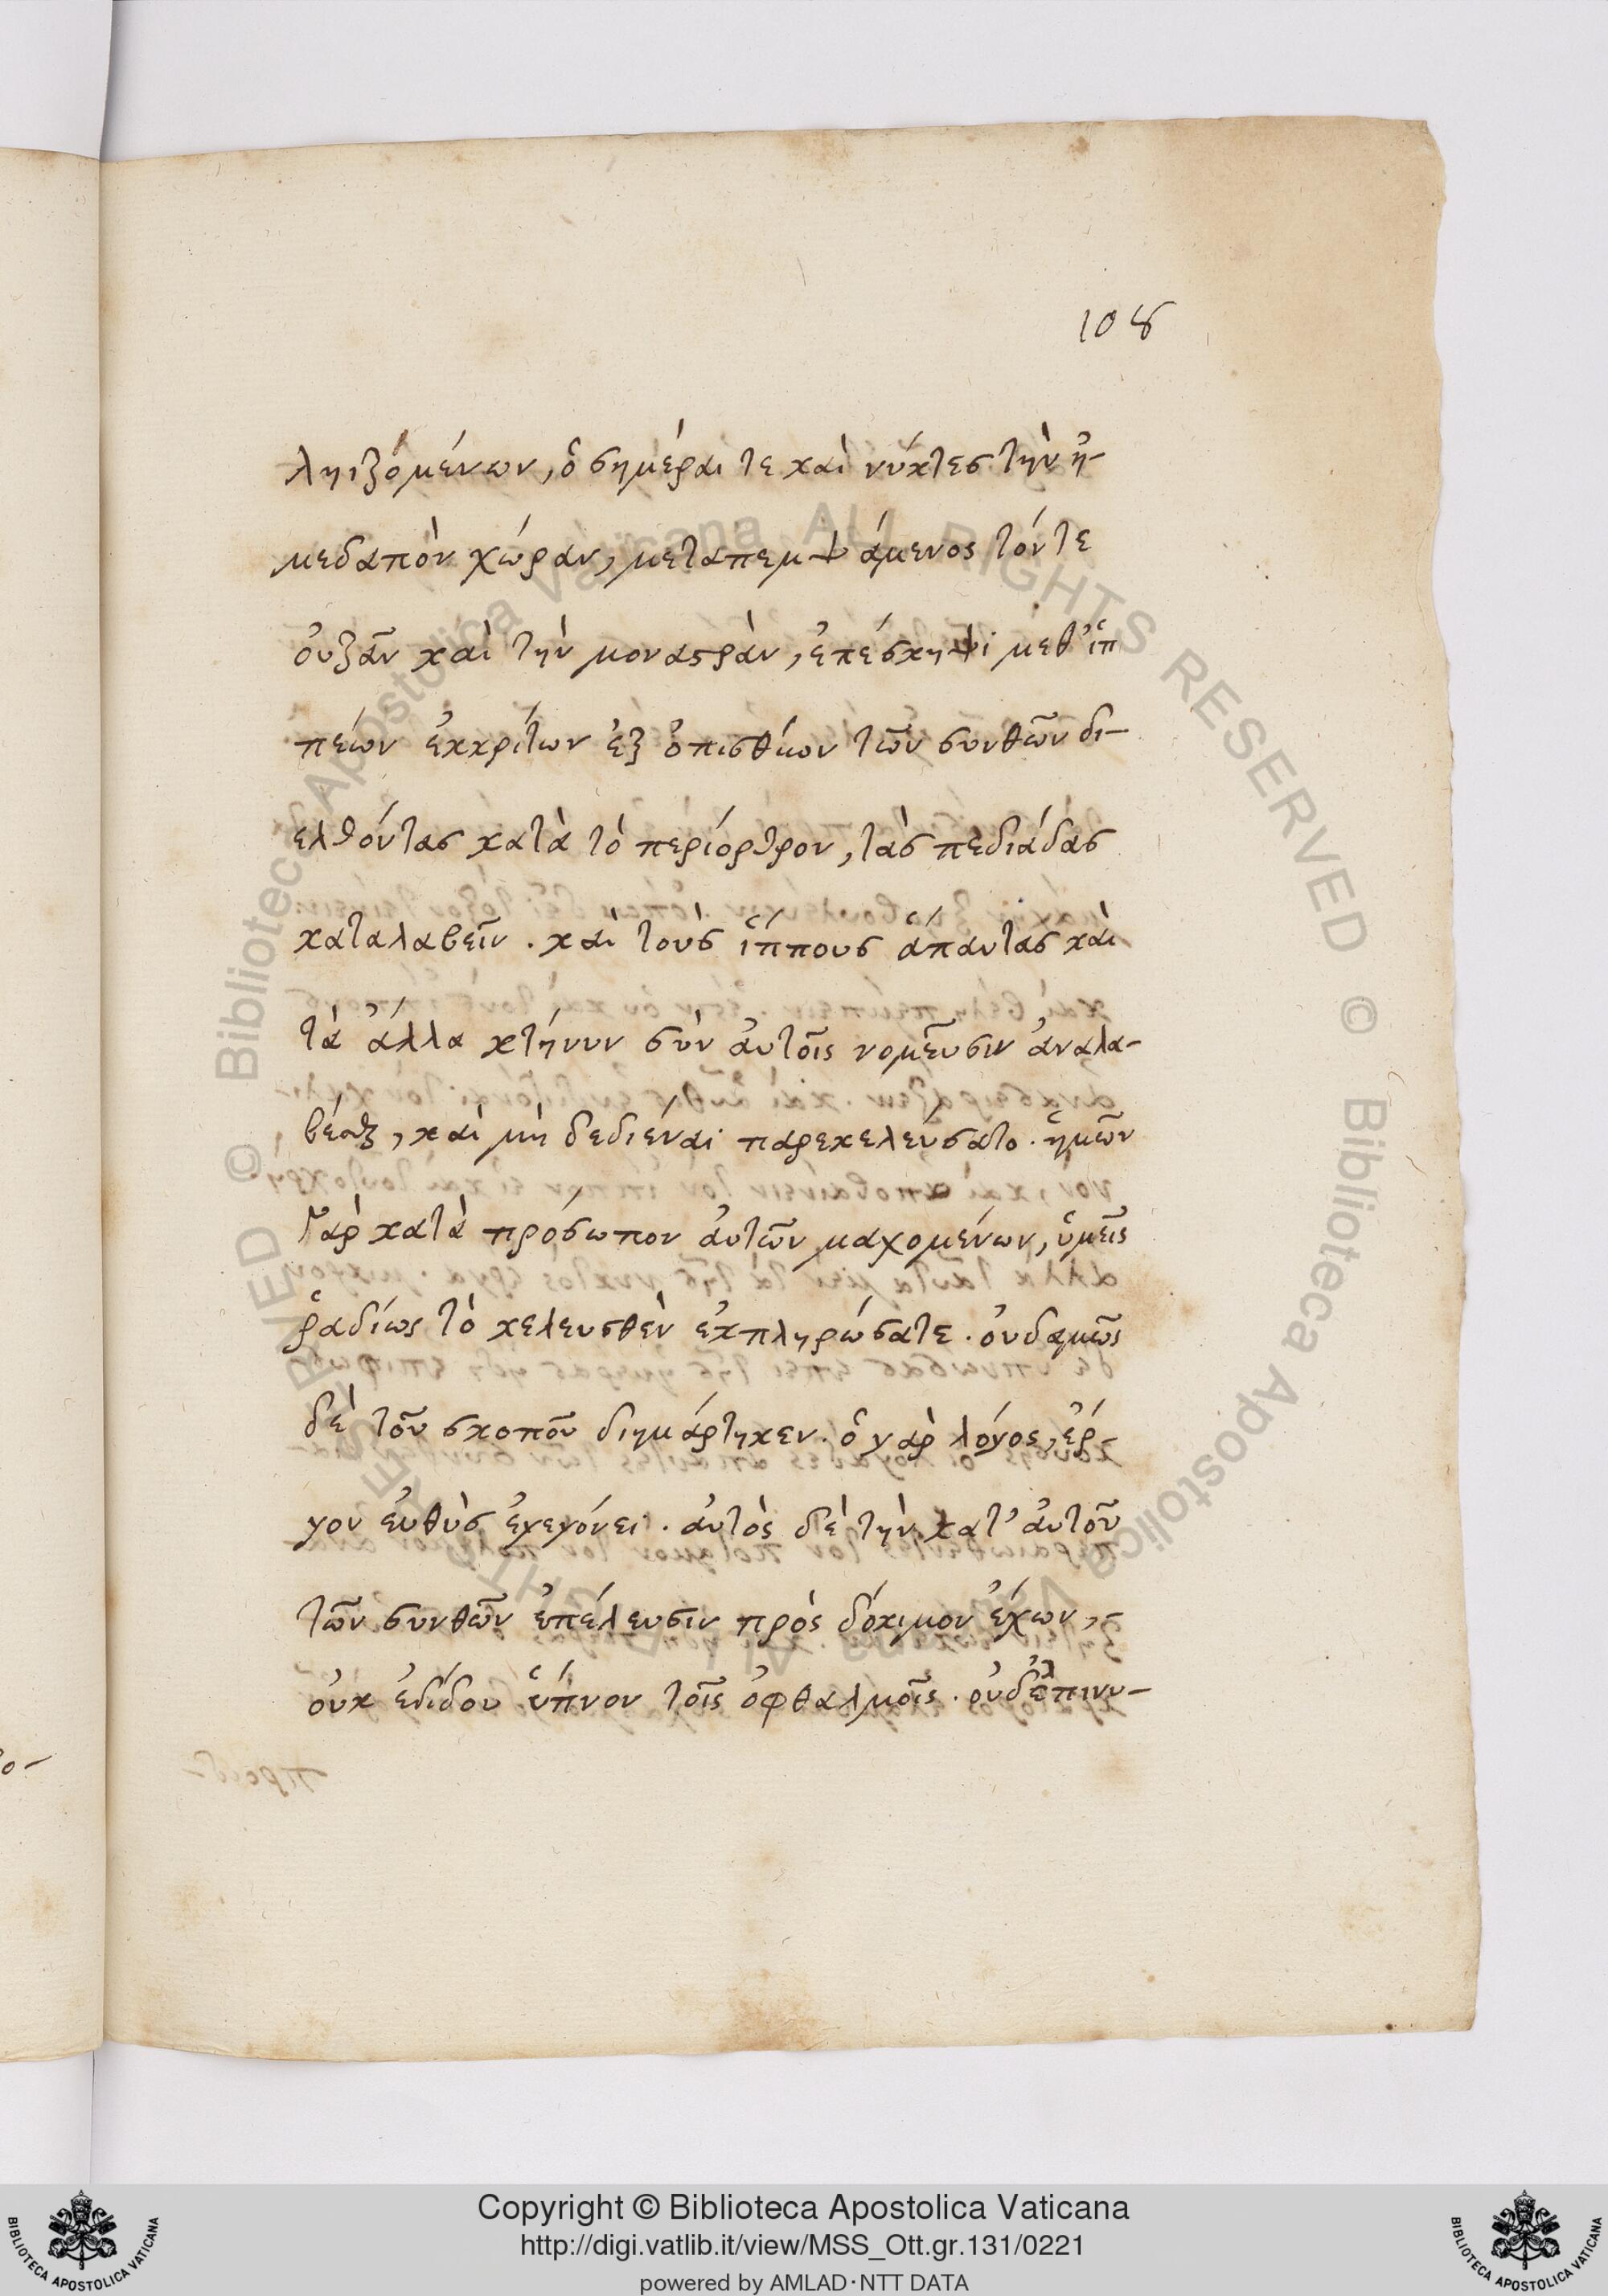 108
ληιζομένων, ὁσημέραι τε καὶ νύκτες τὴν ἡ-
μεδαπὸν χώραν, μεταπεμψάμενος τόν τε
οὐζᾶν καὶ τὴν μοναστρὰν, ἐπέσκηψι μεθ' ἱπ
πέων ἐκκρίτων ἐξ ὀπισθίων τῶν συνθῶν δι-
ελθόντας κατὰ τὸ περίορθρον, τὰς πεδιάδας
καταλαβεῖν. καὶ τοὺς ἵππους ἅπαντας καὶ
τὰ ἄλλα κτήνυν σὺν αὐτοῖς νομεῦσιν ἀναλα-
καὶ μὴ δεδιέναι παρεκελεύσατο. ἡμῶν
Γὰρ κατὰ πρόσωπον αὐτῶν μαχομένων, ὑμεῖς
ῥαδίως τὸ κελευσθὲν ἐκπληρώσατε. οὐδαμῶς
δὲ τοῦ σκοποῦ διημάρτηκεν. ὁ γὰρ λόγος, ἔρ-
γον εὐθὺς ἐγεγόνει. αὐτὸς δὲ τὴν κατ' αὐτοῦ
τῶν συνθῶν ἐπέλευσιν πρὸς δόκιμον ἔχων,
οὐκ ἐδίδου ὕπνον τοῖς ὀφθαλμοῖς.
Copyright © Biblioteca Apostolica Vaticana
http://digi.vatlib.it/view/MSS_Ott.gr.131/0221
powered by AMLAD·NTT DATA
BIBLIOTECA APOSTOLICA VATICANA
BIBLIOTECA APOSTOLICA VATICANA